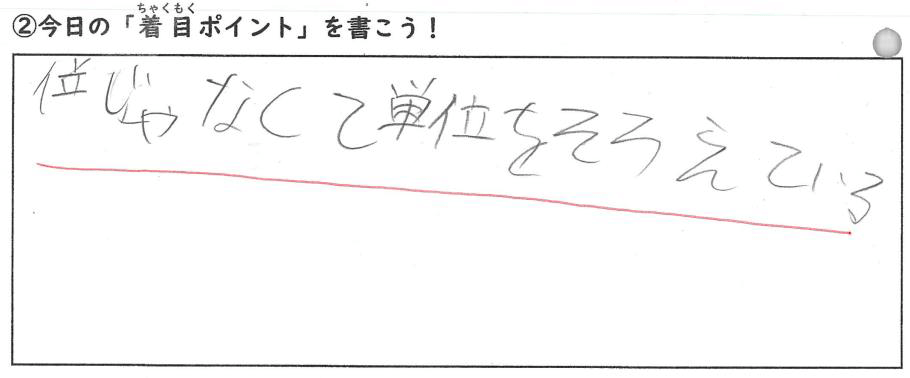 ちゃくもく
②今日の「着目ポイント」を書こう！
位じゃなくて単位をそろえている